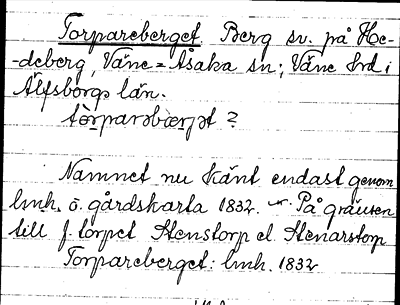 Torpareberget. Berg sv. på He-
-deberg, Väne-Åsaka sn; Väne hrd i
Älfsborgs län.
tòrparəbærjət ?
Namnet nu känt endast genom
lmh. o. gårdskarta 1832. På gränsen
till f. torpet Stenstorp el. Stenarstorp
Torpareberget: lmh. 1832